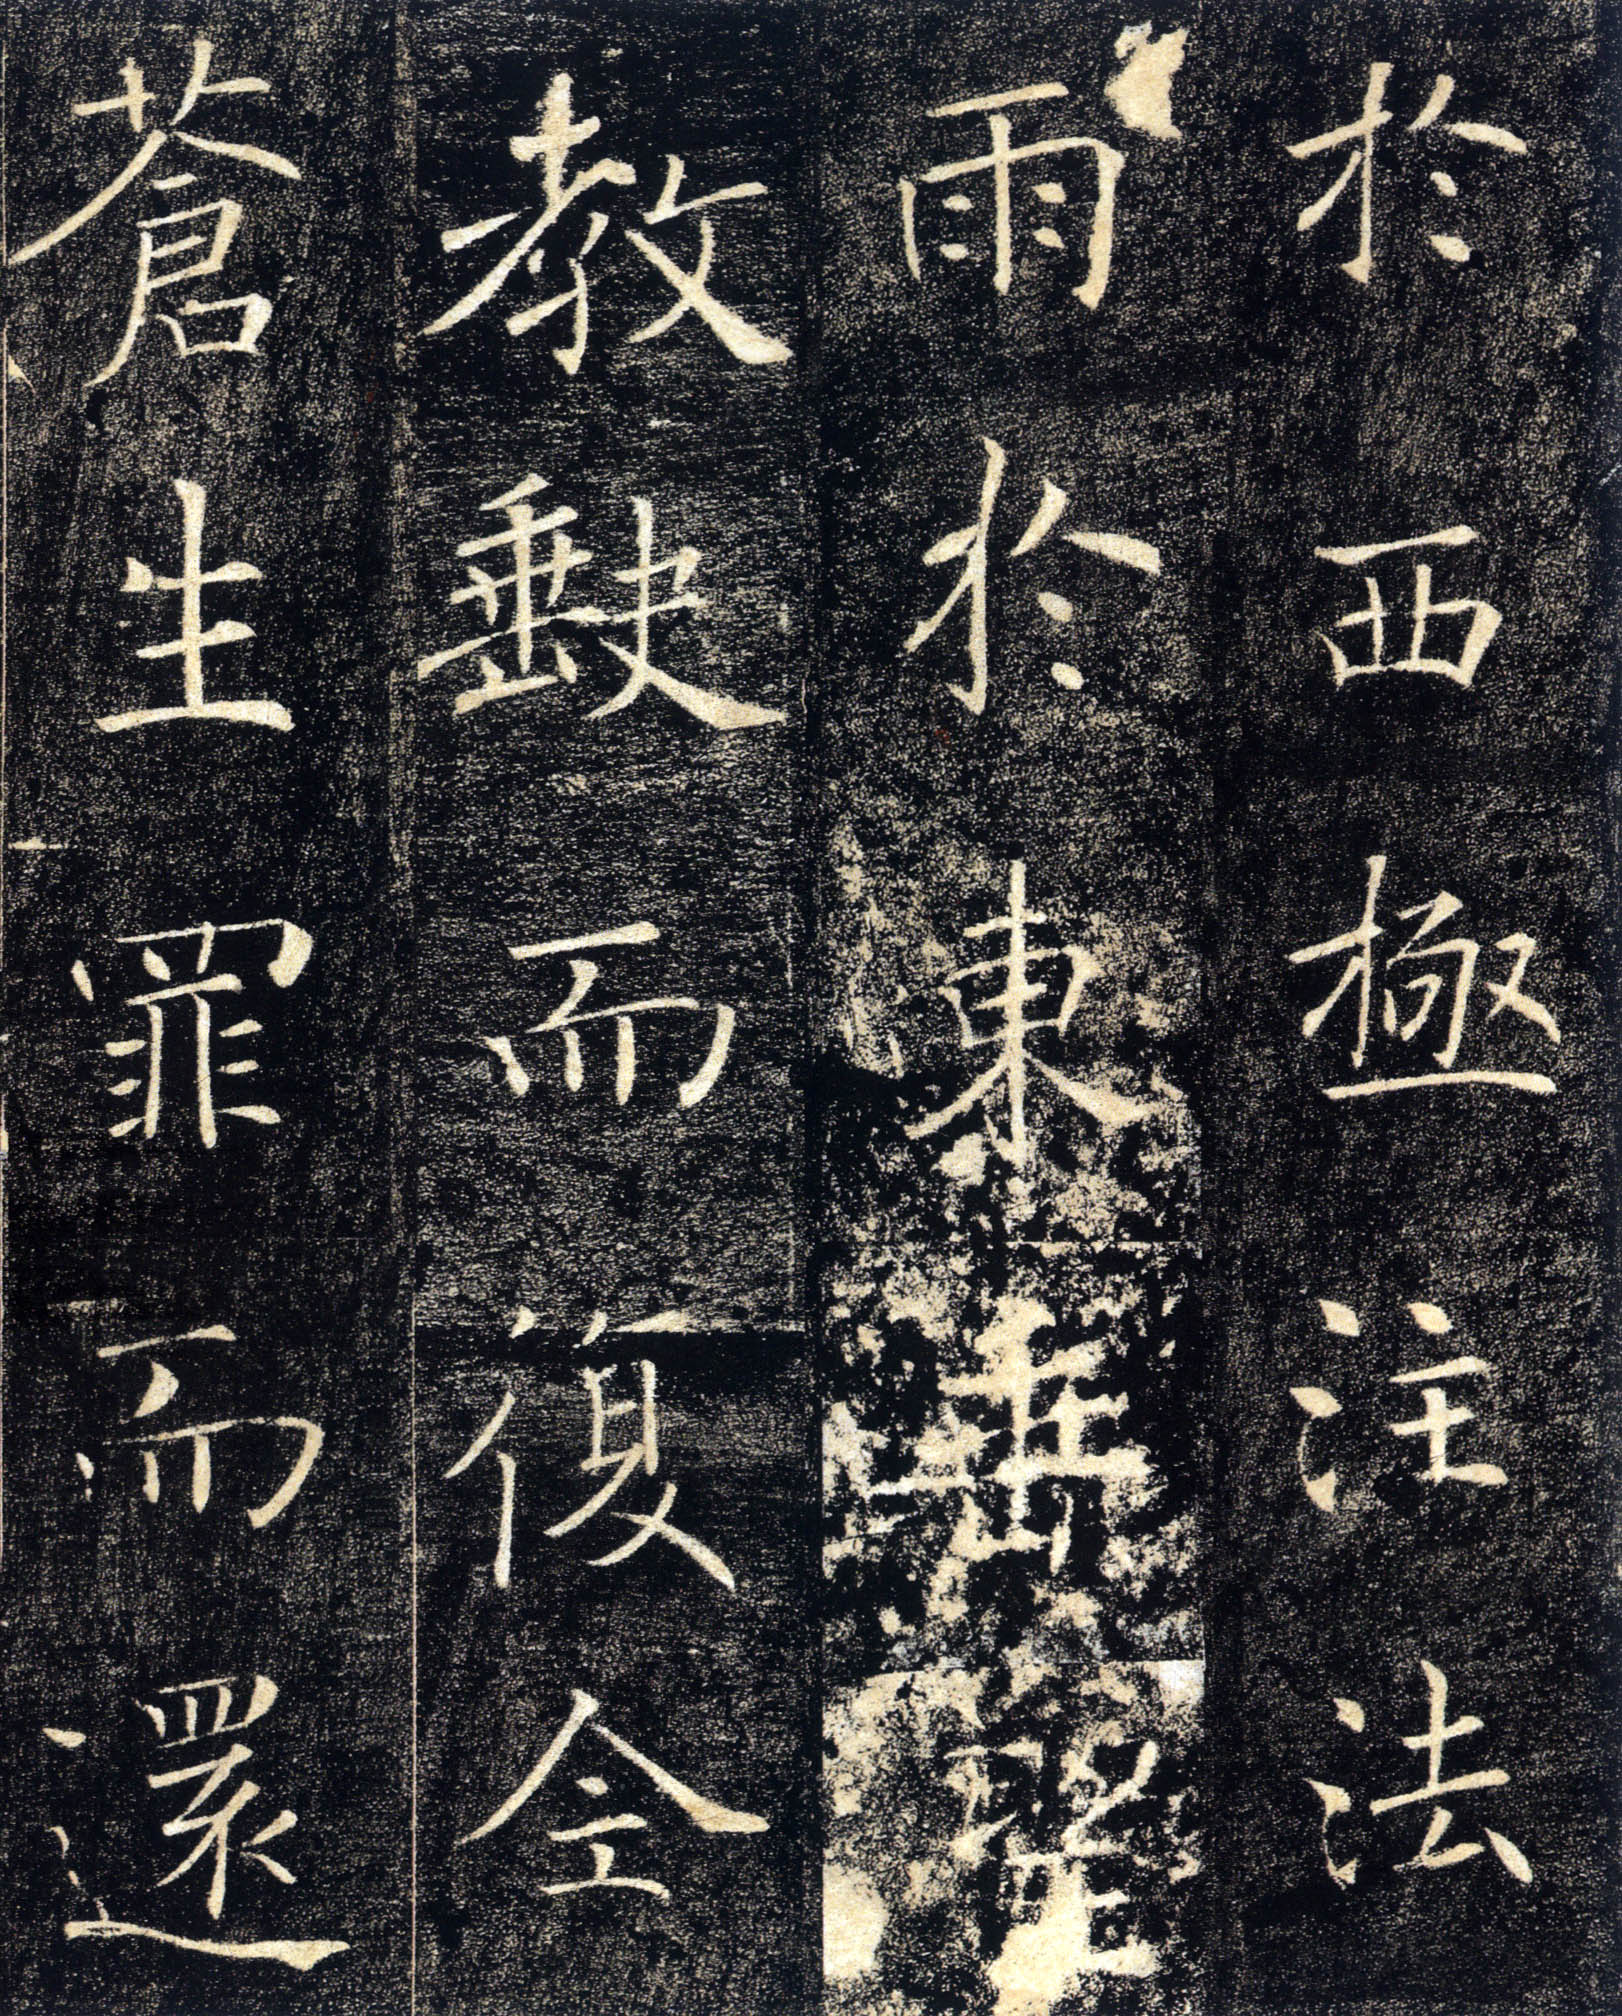 於西極注法
雨於東垂聖
教缺而復全
蒼生罪而還